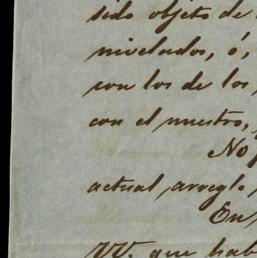 sido objeto de
nivelados, ó,
con los de los
con el nuestro,
No
actual arreglo
En
VV. que hab